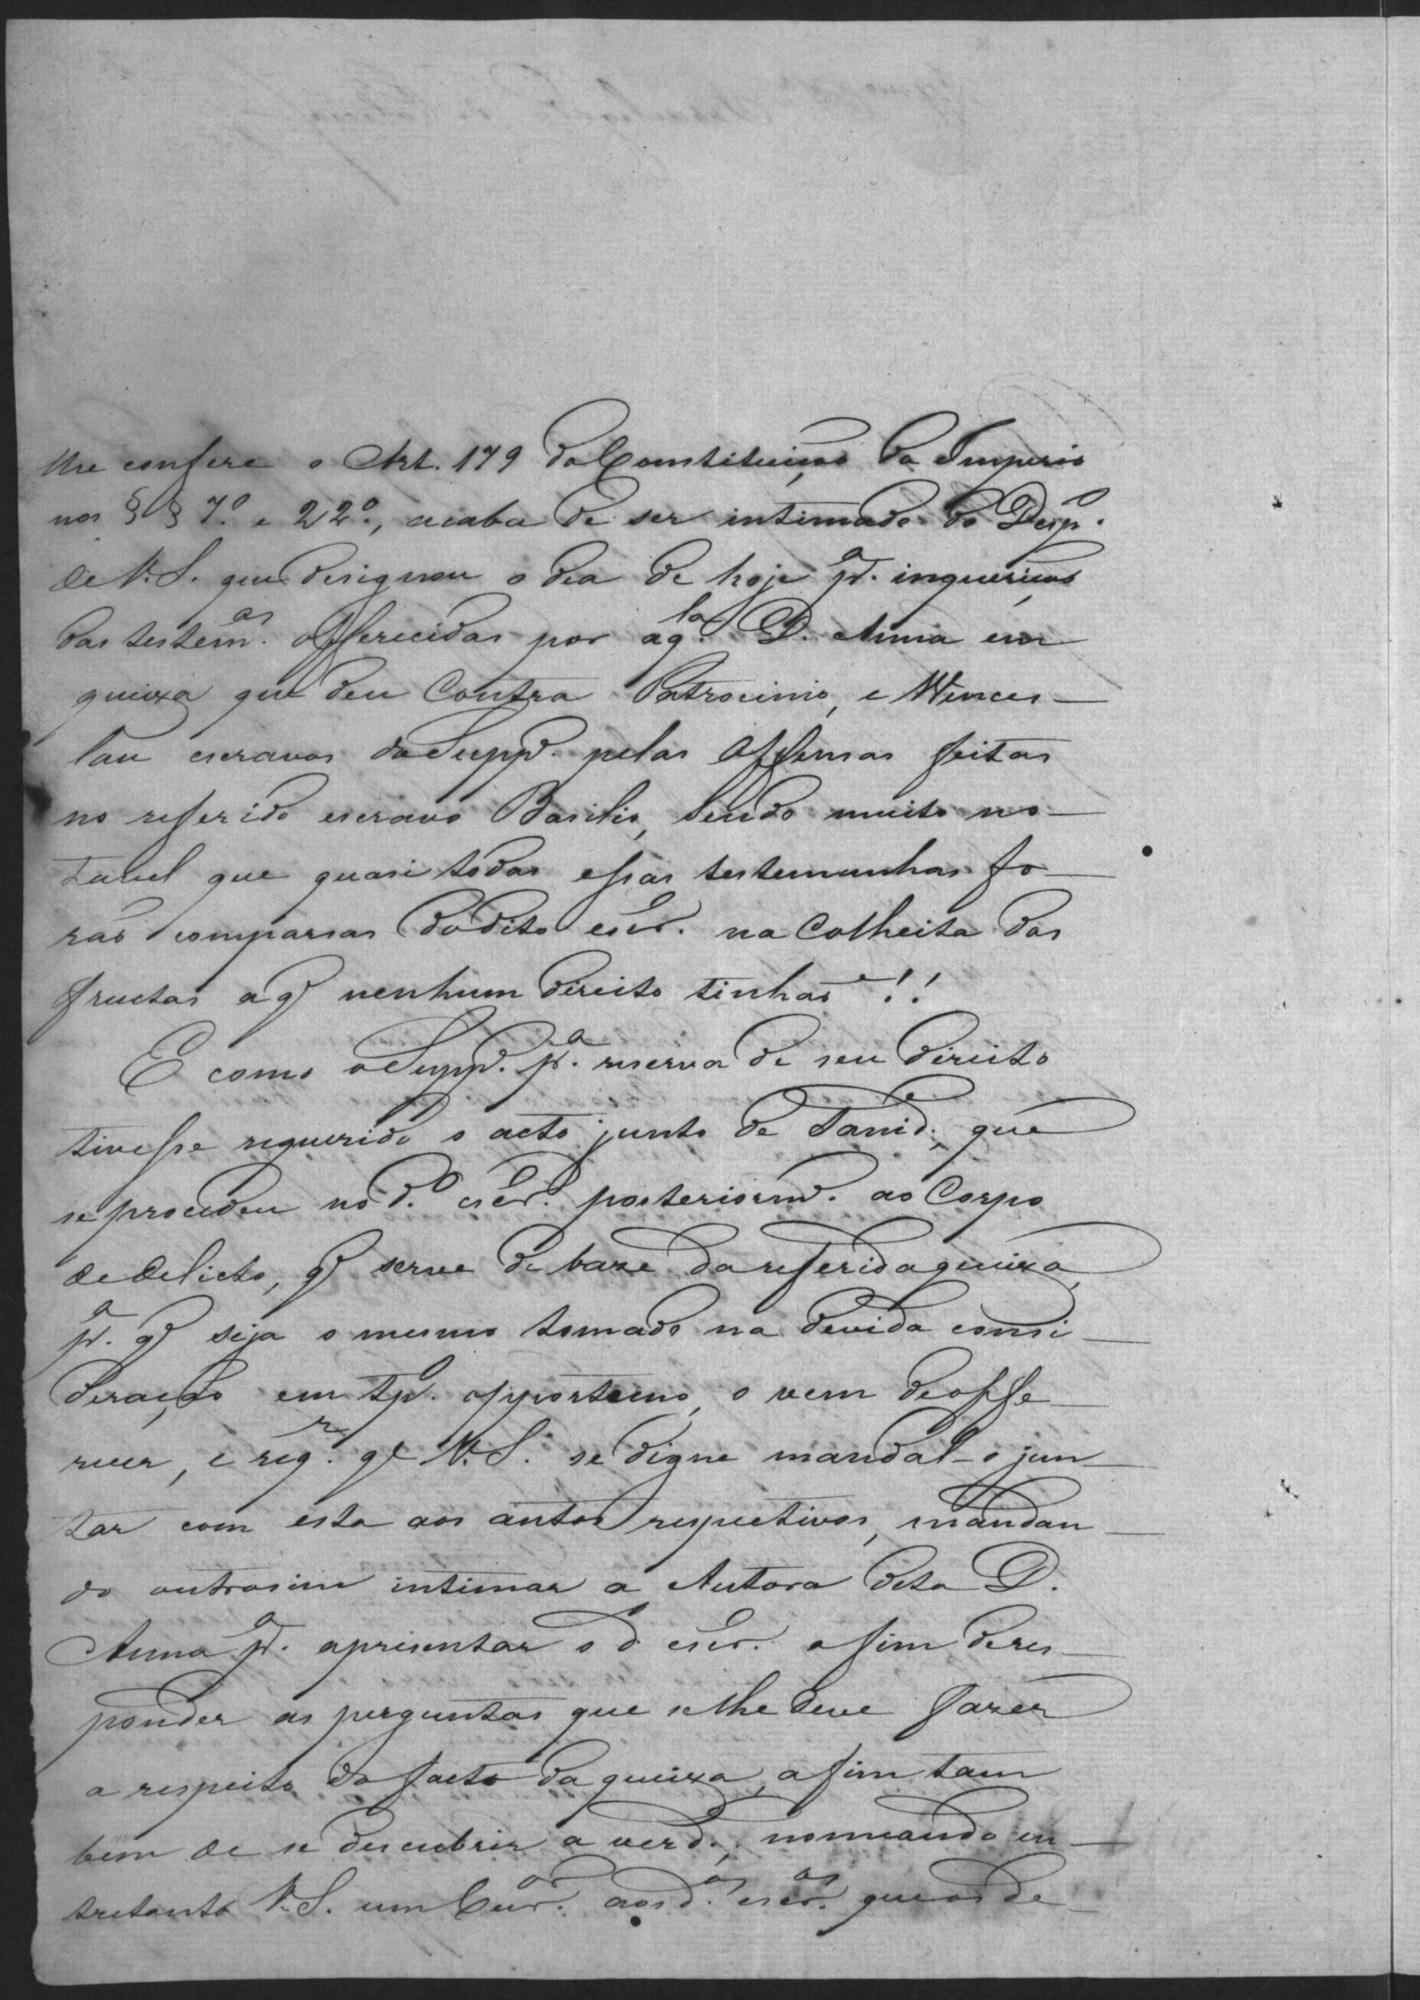 lhe confere o Art. 179 da Constituição do Imperio
nos §§ 7.º e 22.º, acaba de ser intimado do Desp.º
de V. S. que designou o dia de hoje p.ª inquerição
das testem.as offerecidas por aq.la D. Anna em
queixa que deu contra Patrocinio, e Wences-
lau escravos do Supp.e pelas offensas feitas
no referido escravo Basilio, sendo muito no-
tavel que quasi todas essas testemunhas fo-
rão comparsas do dito escr.º na colheita das
fructas a q' nenhum direito tinhão!!
E como o Supp.e p.ª reserva de seu direito
tivesse requerido o acto junto de Sanid.e, que
se procedeu no d.º escr.º posteriorm.e ao Corpo
de delicto, q' serve de baze da referida queixa,
p.ª q' seja o mesmo tomado na devida consi-
deração em tp.º opportuno, o vem de offe-
recer, e req.r q' V. S.ª se digne mandal-o jun-
tar com esta aos autos respectivos, mandan-
do outrosim intimar a Autora dita D.
Anna p.ª apresentar o d.º escr.º afim de res-
ponder as perguntas que se lhe deve fazer
a respeito do facto da queixa, afim tam
bem de se descubrir a verd.e, nomeando en-
tretanto V. S. um Cur.or aos d.os escr.os que os de-